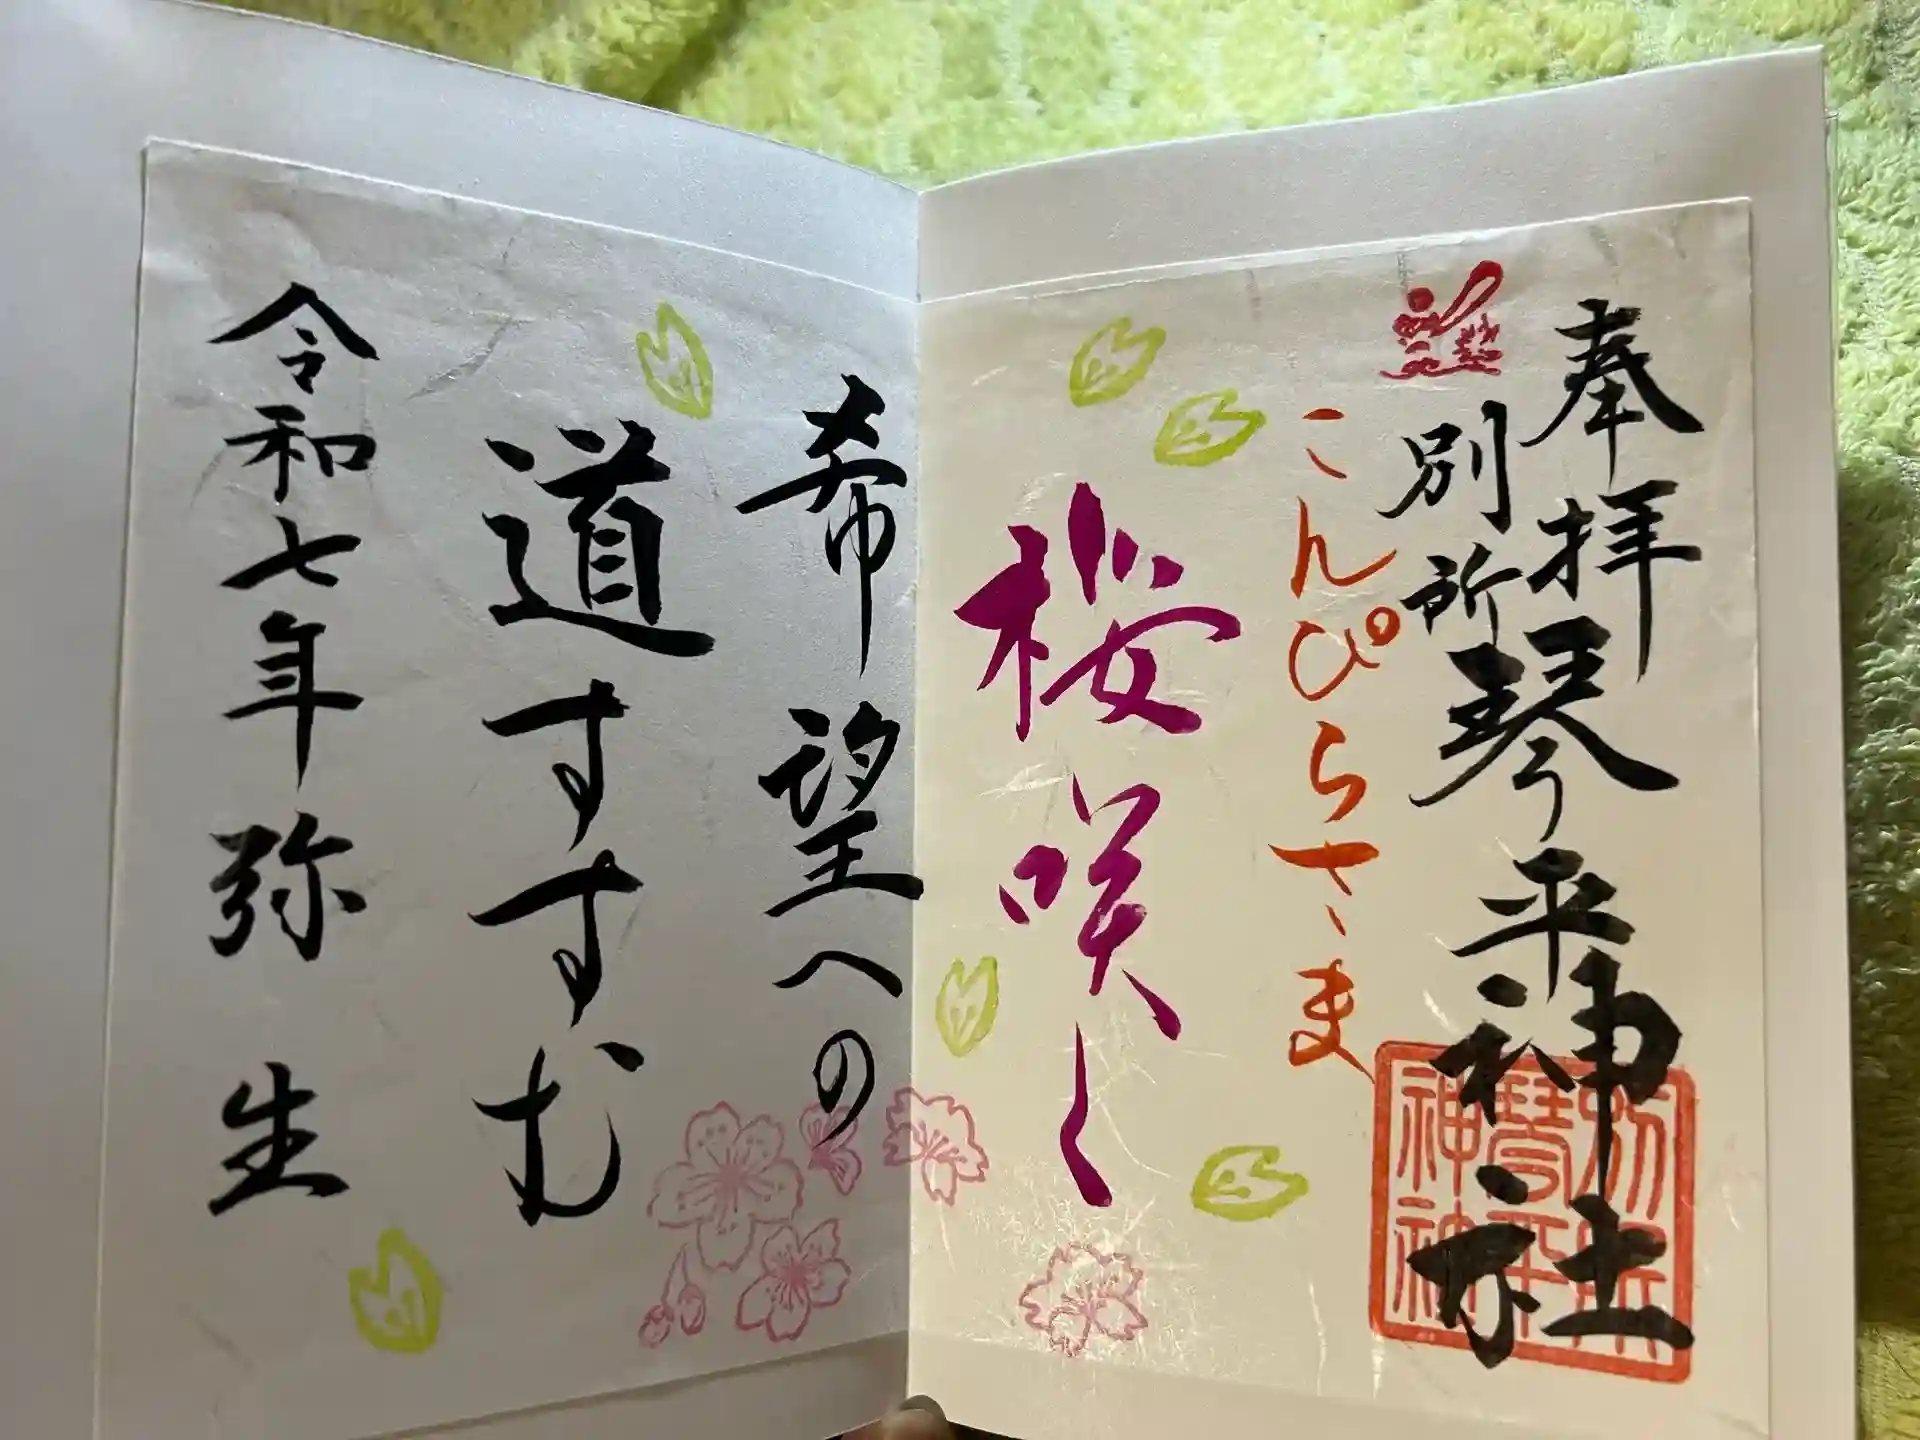 奉拝
別所琴平神社
こんぴらさま
桜咲く
希望への
道すすむ
令和七年弥生